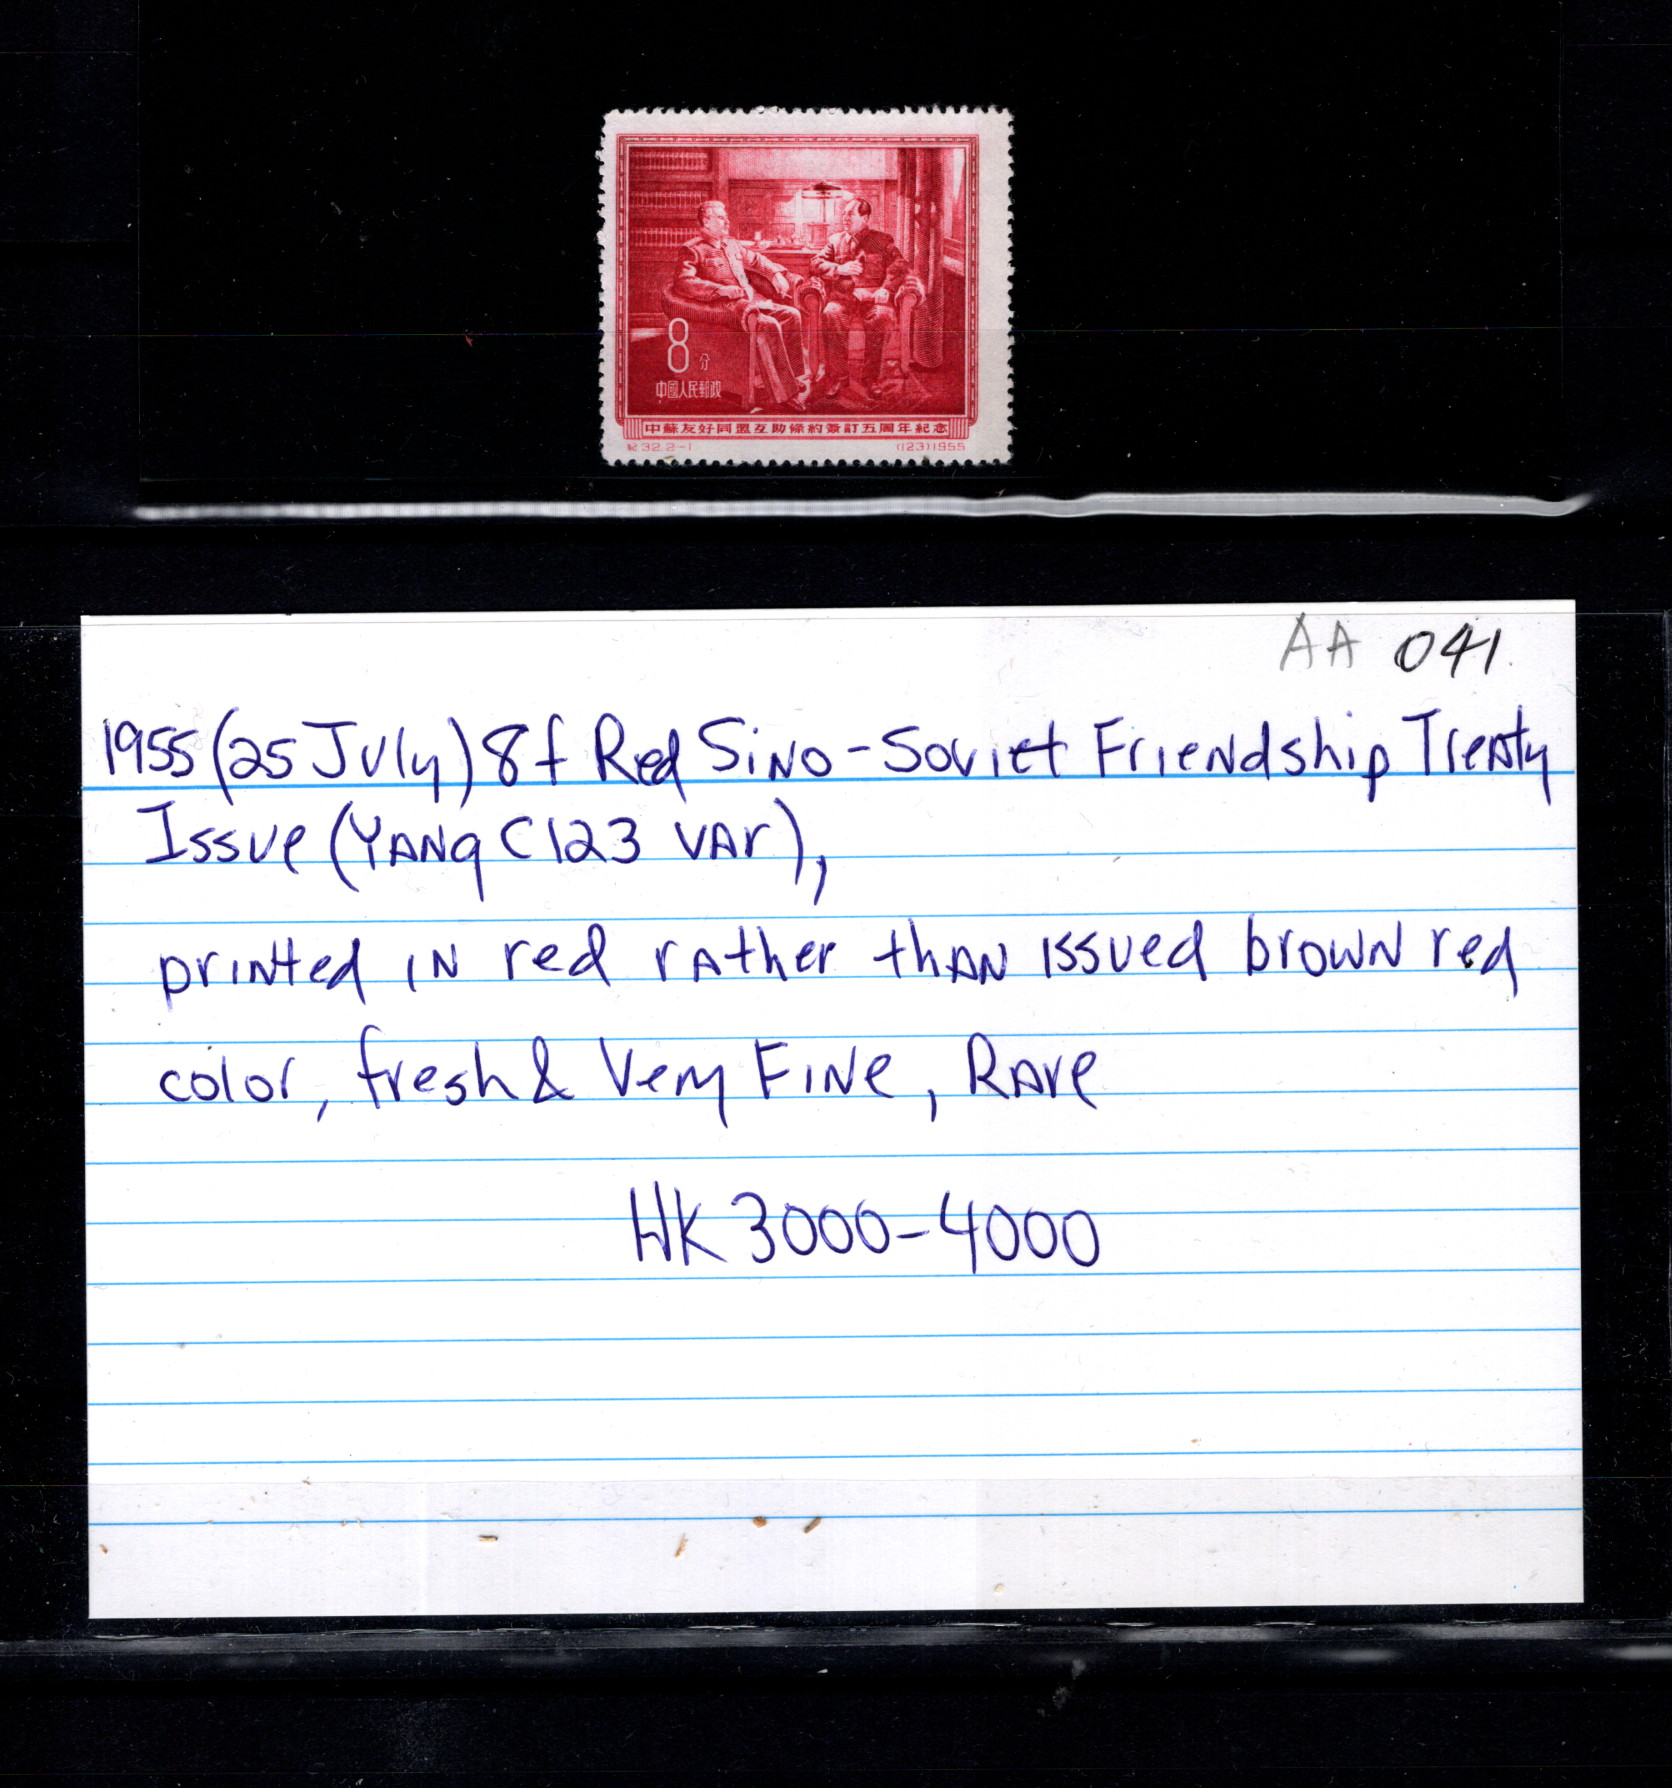 8分
中國人民郵政
中蘇友好同盟互助條約簽訂五周年紀念
紀32.2-1 (123)1955
AA 041
1955 (25 July) 8f Red Sino-Soviet Friendship Treaty
Issue (YANg C123 VAr),
printed in red rather than issued brown red
color, fresh & Very Fine, Rare
HK 3000-4000